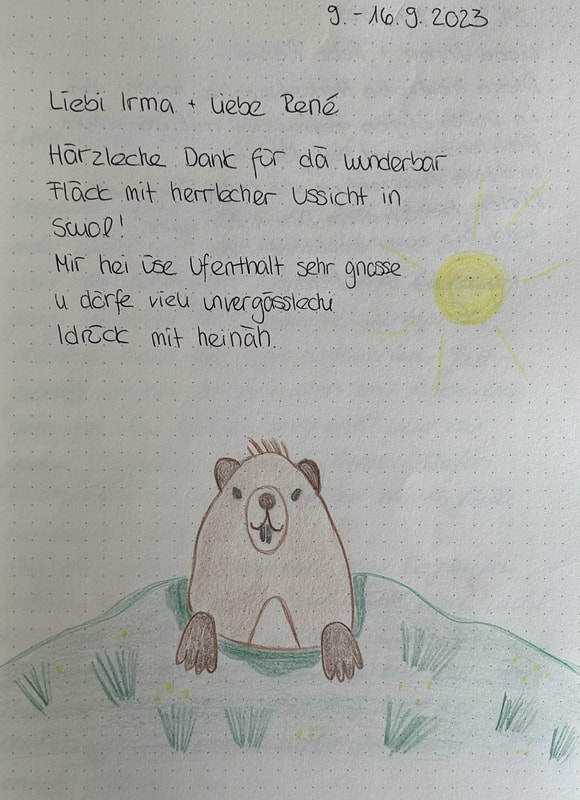 9.-16.9.2023
Liebi Irma + Liebe René
Härzleche Dank für dä wunderbar
Fläck mit herrlecher Ussicht in
Mir hei üse Ufenthalt sehr gnosse
u dörfe vieli unvergässlechi
Idrück mit heinäh.